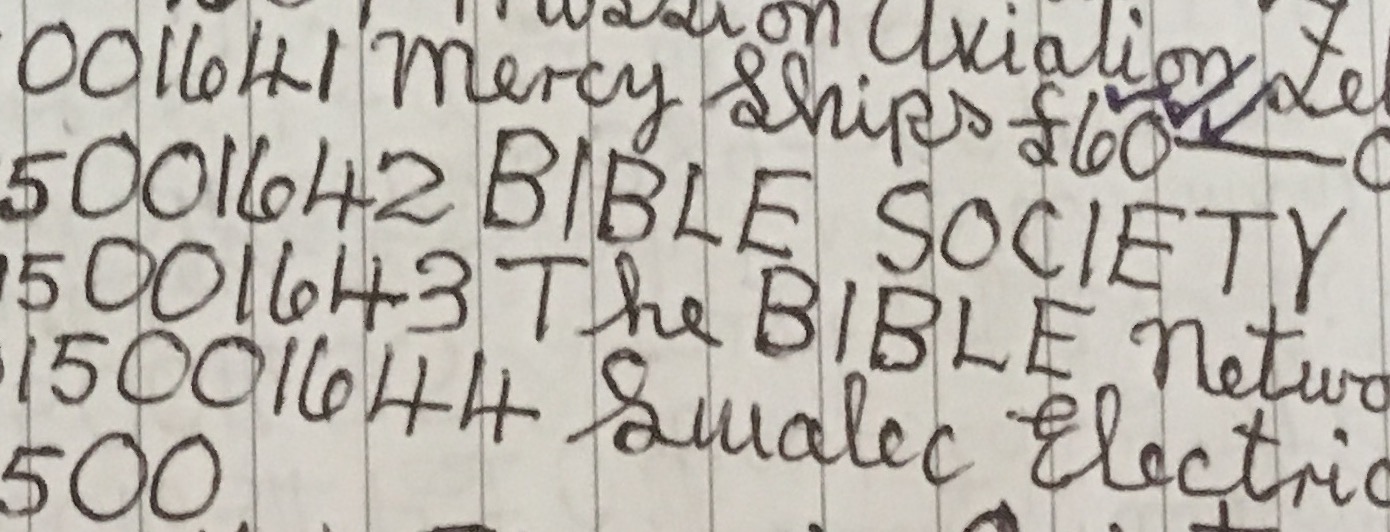 Aviation
001641 Mercy Ships £60
5001642 BIBLE SOCIETY
15001643 The BIBLE Netwo
15001644 Swalec Electric
500